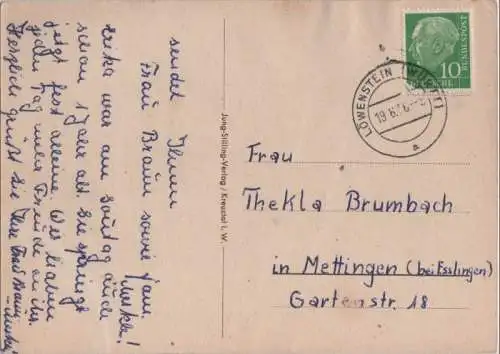 sendet Ihnen
Frau Braun sowie fam.
Erika war am Sontag auch
schon 1 Jahr alt. Sie springt
jetzt fest alleine. Wir haben
jeden Tag mehr Freude an ihr.
Herzlich grüßt Sie Ihre Frau Braun
Jung-Stilling-Verlag / Kreuztal i. W.
10
DEUTSCHE
BUNDESPOST
LÖWENSTEIN (WÜRTT)
a
Frau
Thekla Brumbach
in Mettingen (bei Esslingen)
Gartenstr. 18